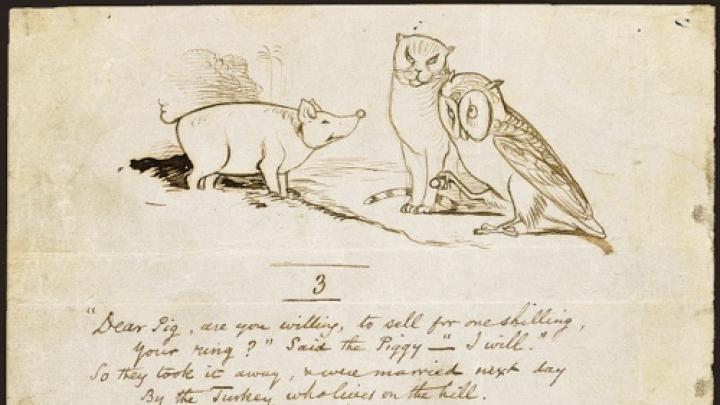 3
"Dear Pig, are you willing, to sell for one shilling,
Your ring?" Said the Piggy — "I will."
So they took it away, & were married next day
By the Turkey who lives on the hill.